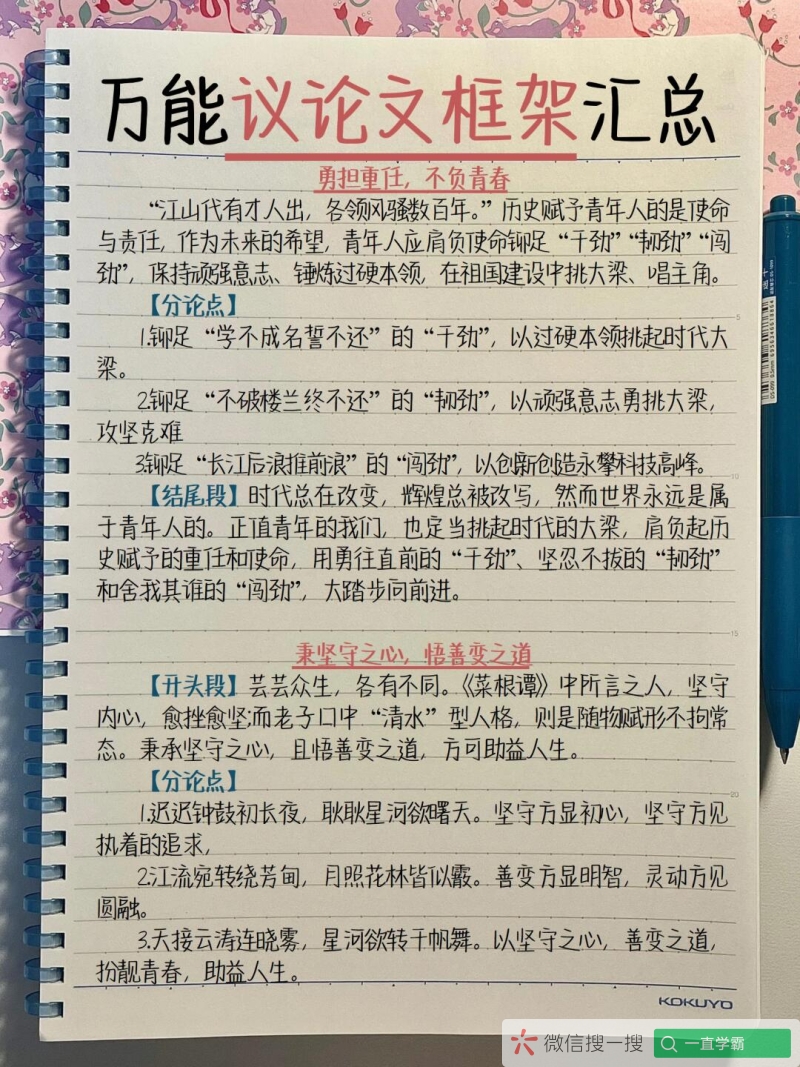 万能议论文框架汇总
勇担重任，不负青春
“江山代有才人出，各领风骚数百年。”历史赋予青年人的是使命
与责任，作为未来的希望，青年人应肩负使命铆足“干劲”“韧劲”“闯
劲”，保持顽强意志、锤炼过硬本领，在祖国建设中挑大梁、唱主角。
【分论点】
1.铆足“学不成名誓不还”的“干劲”，以过硬本领挑起时代大
梁。
2.铆足“不破楼兰终不还”的“韧劲”，以顽强意志勇挑大梁，
攻坚克难
3.铆足“长江后浪推前浪”的“闯劲”，以创新创造永攀科技高峰。
【结尾段】时代总在改变，辉煌总被改写，然而世界永远是属
于青年人的。正值青年的我们，也定当挑起时代的大梁，肩负起历
史赋予的重任和使命，用勇往直前的“干劲”、坚忍不拔的“韧劲”
和舍我其谁的“闯劲”，大踏步向前进。
秉坚守之心，悟善变之道
【开头段】芸芸众生，各有不同。《菜根谭》中所言之人，坚守
内心，愈挫愈坚;而老子口中“清水”型人格，则是随物赋形不拘常
态。秉承坚守之心，且悟善变之道，方可助益人生。
【分论点】
1.迟迟钟鼓初长夜，耿耿星河欲曙天。坚守方显初心，坚守方见
执着的追求，
2.江流宛转绕芳甸，月照花林皆似霰。善变方显明智，灵动方见
圆融。
3.天接云涛连晓雾，星河欲转千帆舞。以坚守之心，善变之道，
扮靓青春，助益人生。
KOKUYO
微信搜一搜
一直学霸